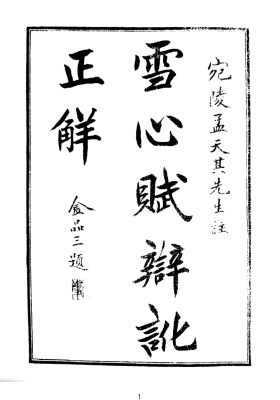 宛陵孟天其先生註
雪心賦辯訛
正觧
金品三題
1